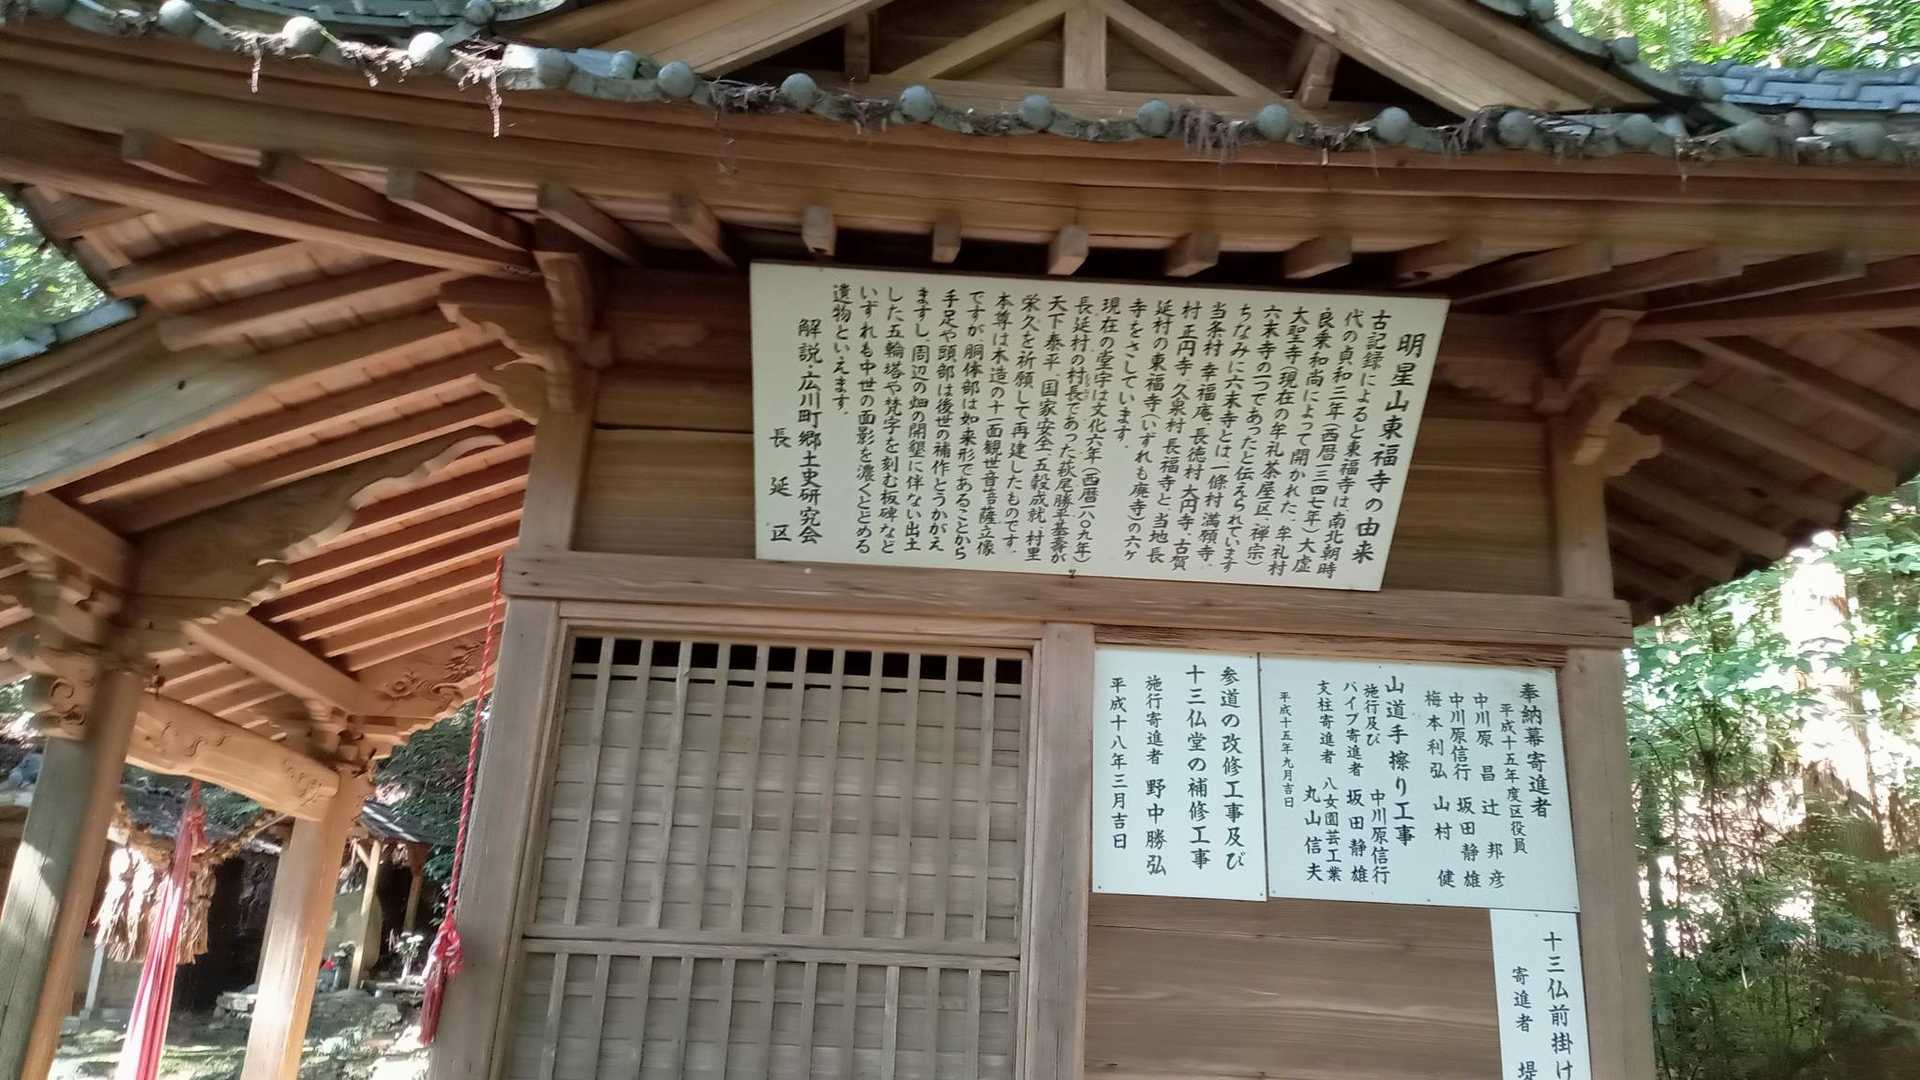 明星山東福寺の由来
古記録によると東福寺は、南北朝時
代の貞和三年(西暦一三四七年)大虚
良乗和尚によって開かれた、牟礼村
大聖寺(現在の牟礼茶屋区、禅宗)
六末寺の一つであったと伝えられています
ちなみに六末寺とは一條村 満願寺、
当条村 幸福庵、長徳村 大円寺、古賀
村 正円寺、久泉村 長福寺と当地長
延村の東福寺(いずれも廃寺)の六ヶ
寺をさしています。
現在の堂宇は文化六年(西暦一八〇九年)
長延村の村長であった萩尾勝平基壽が
天下泰平、国家安全、五穀成就、村里
栄久を祈願して再建したものです。
本尊は木造の十一面観世音菩薩立像
ですが、胴体部は如来形であることから
手足や頭部は後世の補作とうかがえ
ますし、周辺の畑の開墾に伴ない出土
した五輪塔や梵字を刻む板碑など
いずれも中世の面影を濃くとどめる
遺物といえます。
解説・広川町郷土史研究会
長延区
奉納幕寄進者
平成十五年度区役員
中川原 昌 辻 邦彦
中川原信行 坂田静雄
梅本利弘 山村 健
山道手擦り工事
施行及び 中川原信行
パイプ寄進者 坂田静雄
支柱寄進者 八女園芸工業
丸山信夫
平成十五年九月吉日
参道の改修工事及び
十三仏堂の補修工事
施行寄進者 野中勝弘
平成十八年三月吉日
十三仏前掛け
寄進者 堤